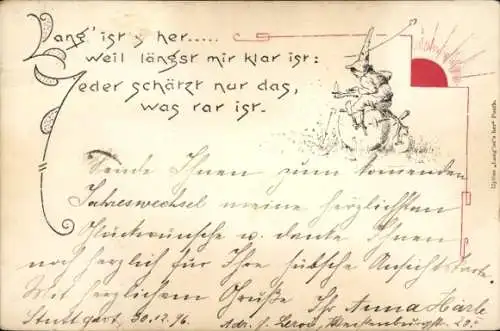 Lang' ist's her.....
weil längst mir klar ist:
Jeder schärzt nur das,
was rar ist.
Sende Ihnen zum komenden
Jahreswechsel meine herzlichsten
Glückwünsche u. danke Ihnen
noch herzlich für Ihre hübsche Ansichtskarte.
Mit herzlichem Gruße Ihr Anna Härle
Stuttgart, 30.12.96. Adr. f.